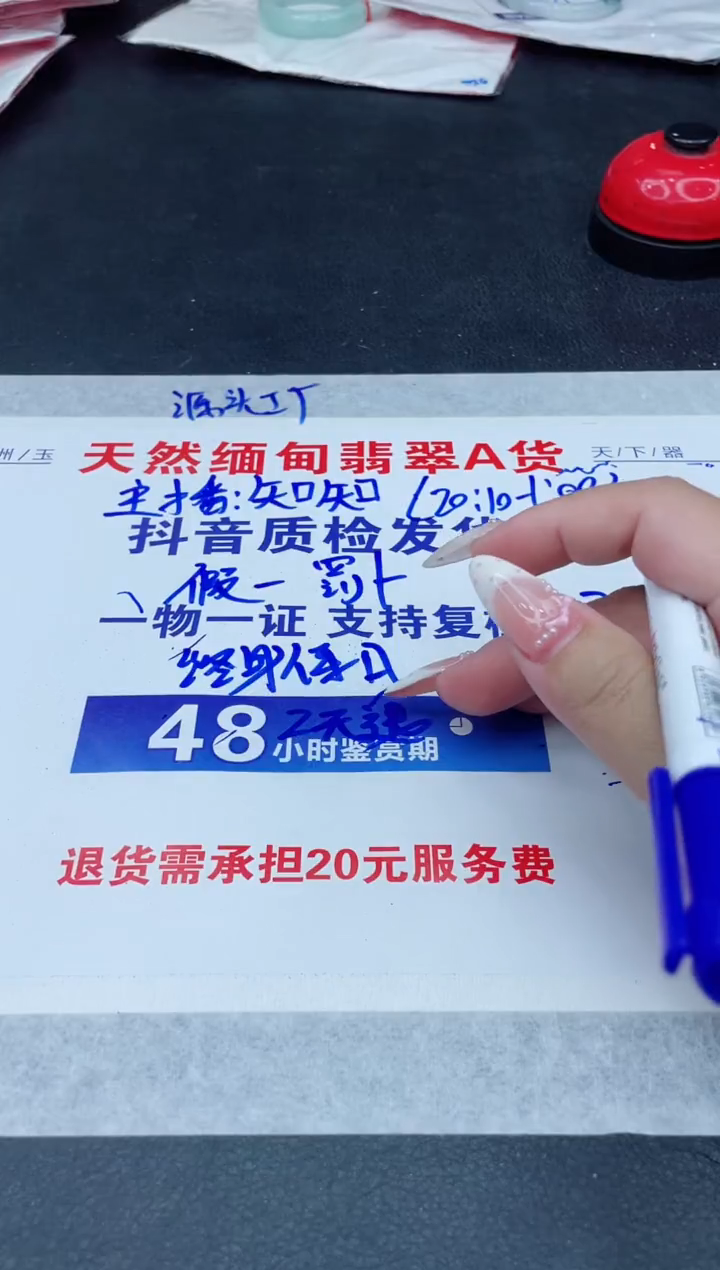 源头工厂
州/玉
天然缅甸翡翠A货
天/下/器
主播:知知
抖音质检发货
假一罚十
一物一证 支持复检
终身保
48小时鉴赏期
2天
退货需承担20元服务费